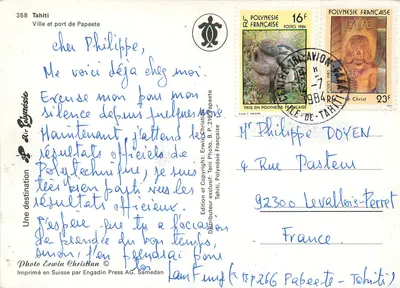 358 Tahiti
Ville et port de Papeete
cher Philippe,
Me voici déjà chez moi.
Excuse mon pour mon
silence depuis quelques
Maintenant, j'attend les
résultats officiels de
Polytechnique, je suis
bien parti vers les
résultats officieux.
J'espère que tu a l'occasion
de prendre du bon temps,
sinon, j'en prendrai pour
toi
Une destination Air Polynésie
Edition et Copyright: Erwin
Distributeur exclusif: Tahiti, Polynésie Française
Photo Erwin Christian
Imprimé en Suisse par Engadin Press AG, Samedan
16F
POLYNESIE FRANÇAISE
POSTES 1984
TIKIS EN POLYNESIE FRANÇAISE
POLYNESIE FRANÇAISE
Christ
23F
AVION
-7
1984
ILE-DE-TAHITI
Mr Philippe DOYEN
4 Rue Pasteur
92300 Levallois-Perret
France
(BP266 Papeete-Tahiti)